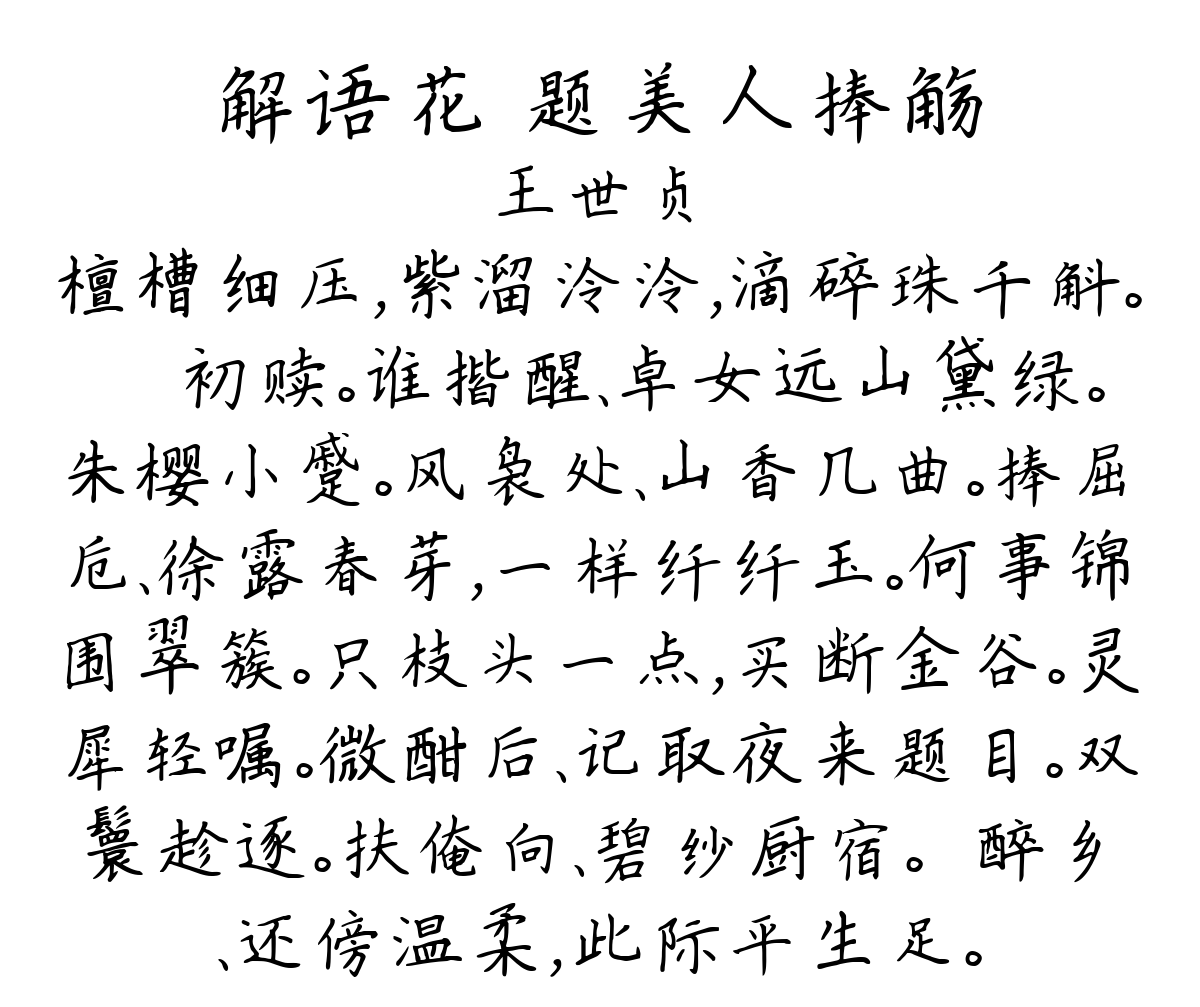 解语花 题美人捧觞
王世贞
檀槽细压,紫溜泠泠,滴碎珠千斛。
初赎。谁揩醒、卓女远山黛绿。
朱樱小蹙。风袅处、山香几曲。捧屈
卮、徐露春芽,一样纤纤玉。何事锦
围翠簇。只枝头一点,买断金谷。灵
犀轻嘱。微酣后、记取夜来题目。双
鬟趁逐。扶俺向、碧纱厨宿。醉乡
、还傍温柔,此际平生足。